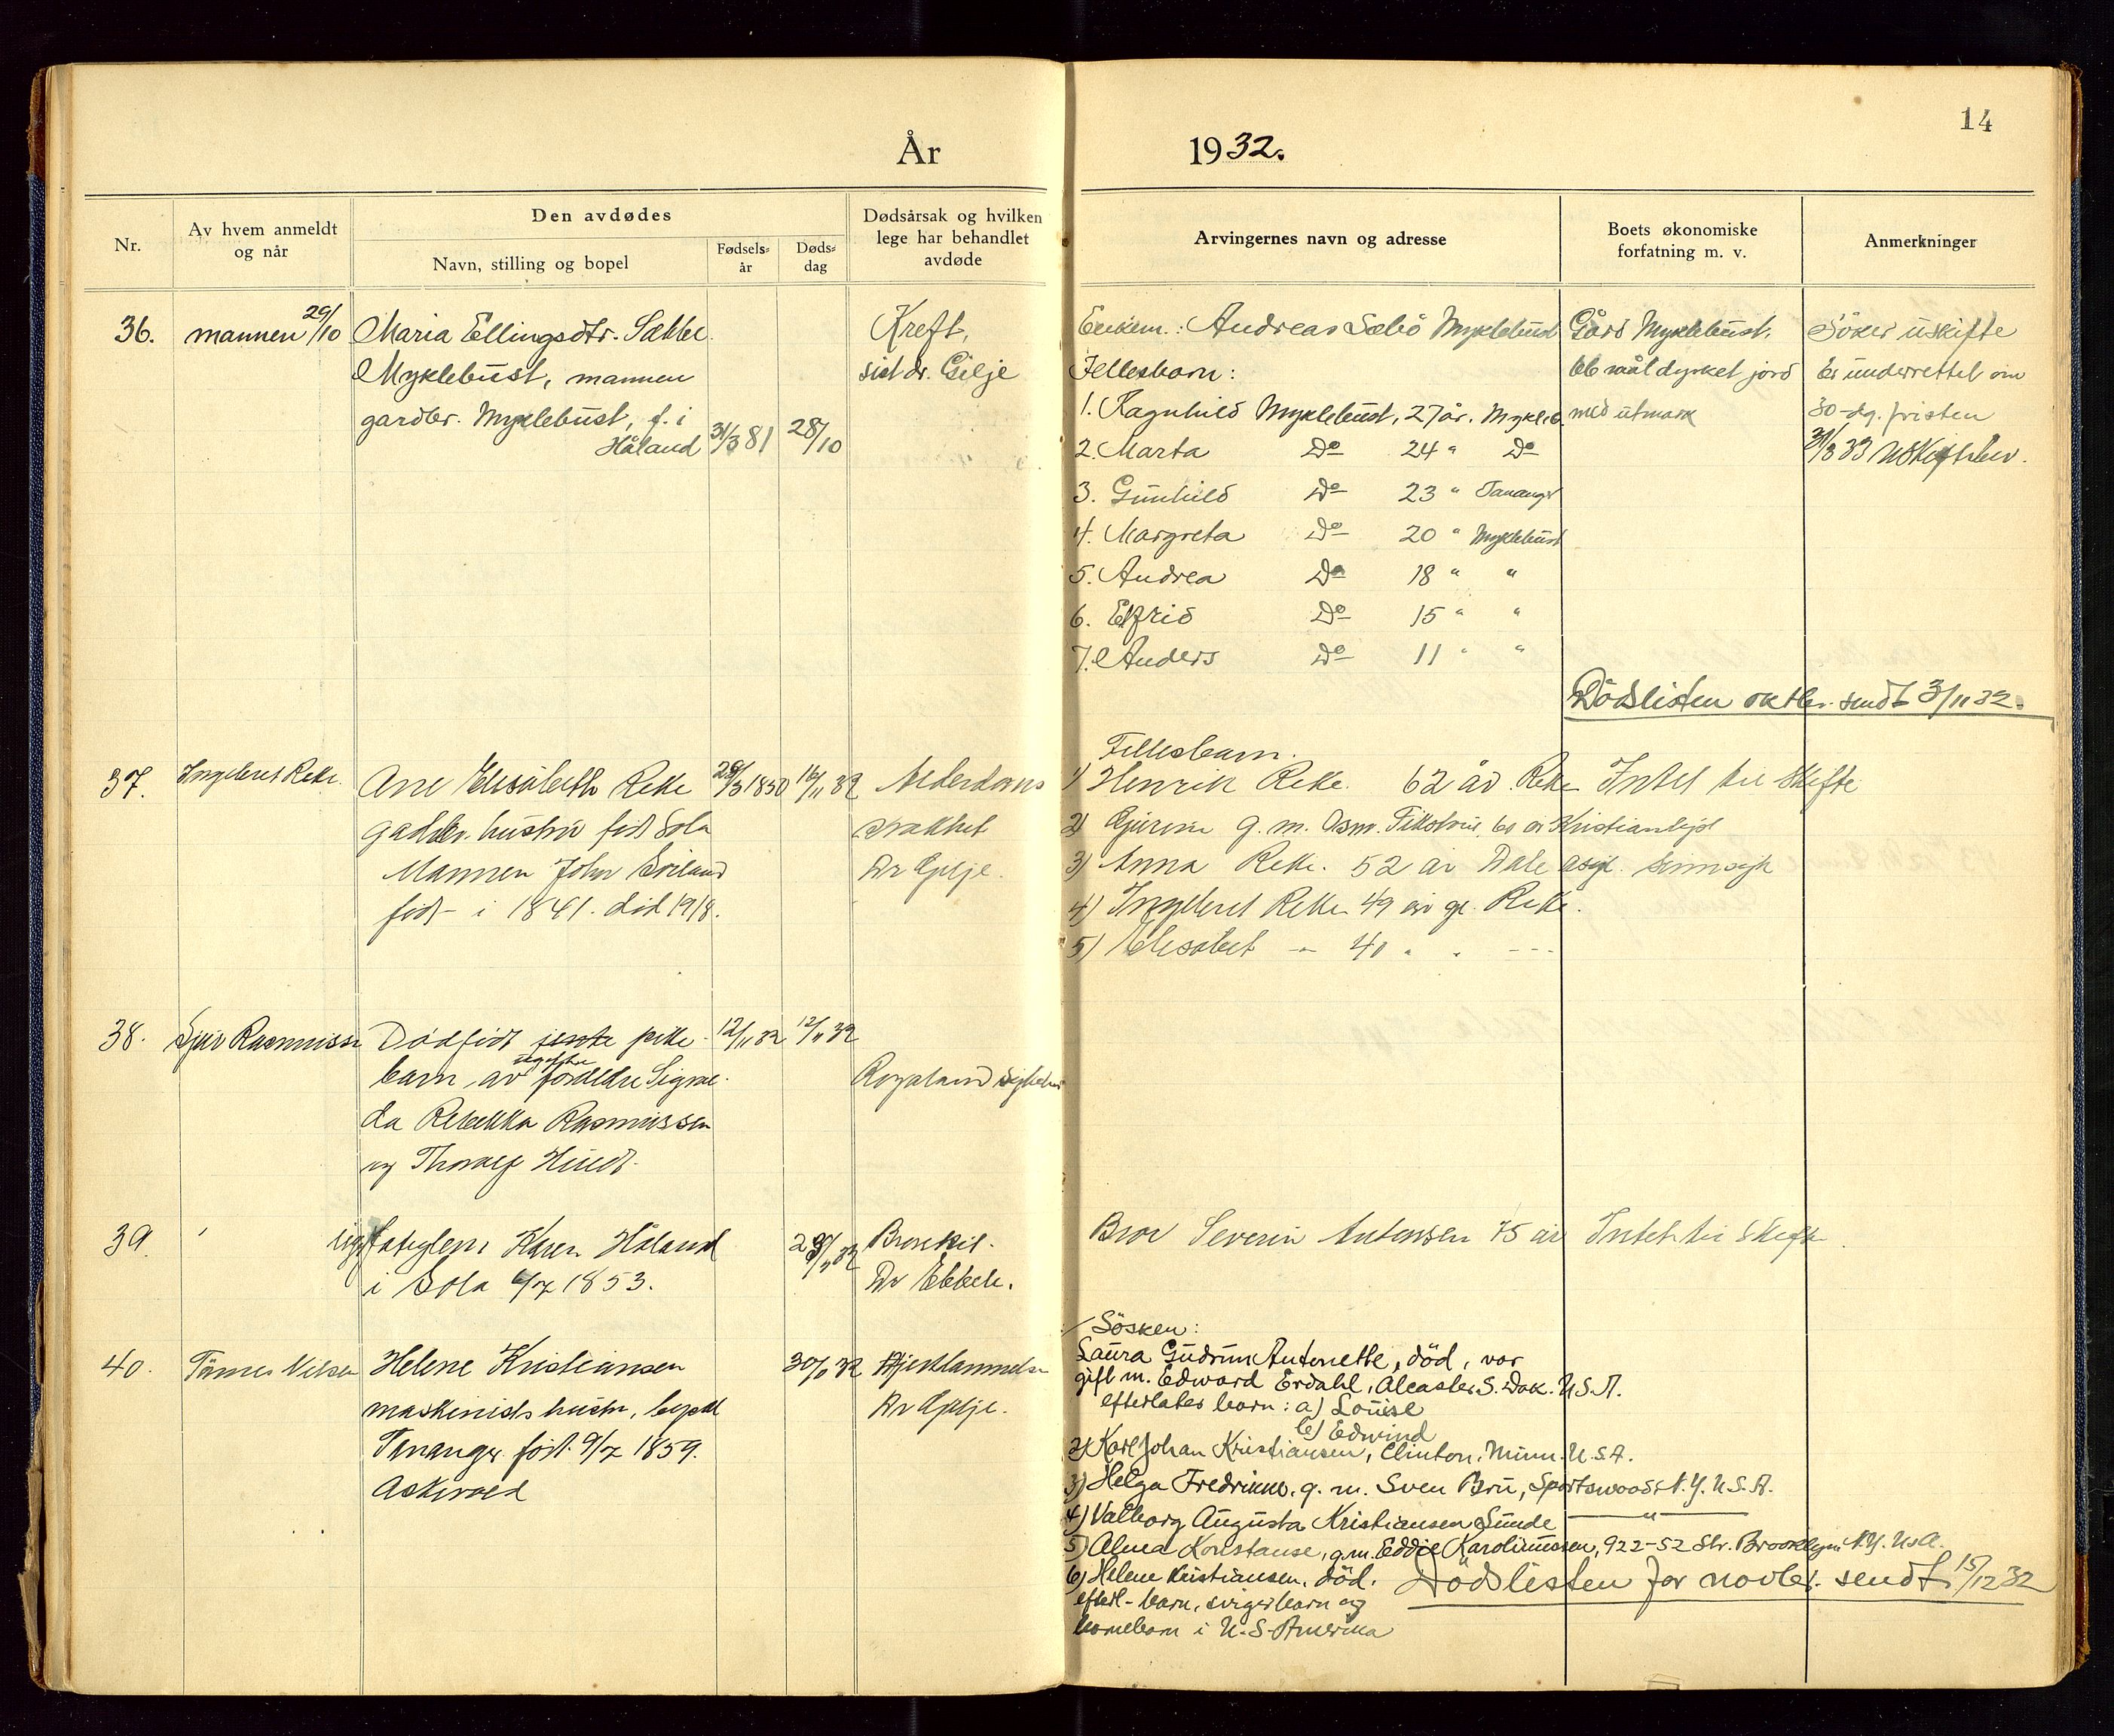 14
År 1932.
Nr.
Av hvem anmeldt og når
Den avdødes
Navn, stilling og bopel
Fødsels-år
Døds-dag
Dødsårsak og hvilken lege har behandlet avdøde
Arvingernes navn og adresse
Boets økonomiske forfatning m. v.
Anmerkninger
36. mannen 29/10
Maria Ellingsdtr. Sækbe
Myklebust, mannen
gardbr. Myklebust, f. i
Håland 31/3 81 28/10
Kreft,
sist dr. Gilje
Enkem.: Andreas Sæbö Myklebust
Fellesbarn:
1. Ragnhild Myklebust, 27 år. Mykleb.
2. Marta Do 24 " Do
3. Gunhild Do 23 " Tananger
4. Margreta Do 20 " Myklebust
5. Andrea Do 18 " "
6. Elfrid Do 15 " "
7. Anders Do 11 " "
Gård Myklebust,
66 mål dyrket jord
med utmark
Söker uskifte
Er underrettet om
30-dg. fristen
31/3 33 Uskiftebev.
Dödslisten oktbr. sendt 3/11 32.
37. Ingeboret Reke
Ane Elisabeth Reke 1850 16/11 32
gardbr. hustru født Sola
Mannen John
født i 1841. död 1918.
Alderdoms
svakhet
Dr Gilje.
Fellesbarn.
1) Henrik Reke. 62 år Reke
2) g. m. 60 år Kristianlyst
3) Anna Reke. 52 år Dale asyl.
4) Ingeboret Reke 49 år gl. Reke.
5) Elisabet — 40 " " ---
Intet til Skifte
38. Rasmussen
Dødfødt jente pike 12/11 32 12/11 32
barn av ugifte foreldre Signe
da Rebekka Rasmussen
og Thoralf
Rogaland Sykehus
39.
Karen Håland
i Sola 6/7 1853.
29/11 32
Dr
Bror Severin Antonsen 75 år
Intet til Skifte
40. Tønnes Nilsen
Helene Kristiansen 30/11 32
maskinists hustru, bopel
Tananger født 9/7 1859.
Askvold
Hjerteslammelse
Dr Gilje.
Sösken:
Laura Gudrun Antonette, död, var
gift m. Edward Erdahl, Alcaster S. Dak. U.S.A.
efterlates barn: a) Louise
b) Edwind
2) Karl Johan Kristiansen, Clinton, Minn. U.S.A.
3) Helga Fredrikke, g. m. Sven Bru, Sportswood N.Y. U.S.A.
4) Valborg Augusta Kristiansen Sunde — " —
5) Alma Konstanse, g.m. Eddie Karoliussen, 922-52 Str. Brooklyn N.Y. U.S.A.
6) Helene Kristiansen, död.
efterl. barn, svigerbarn og
barnebarn i U.S. Amerika
Dödslisten for novbr. sendt 15/12 32